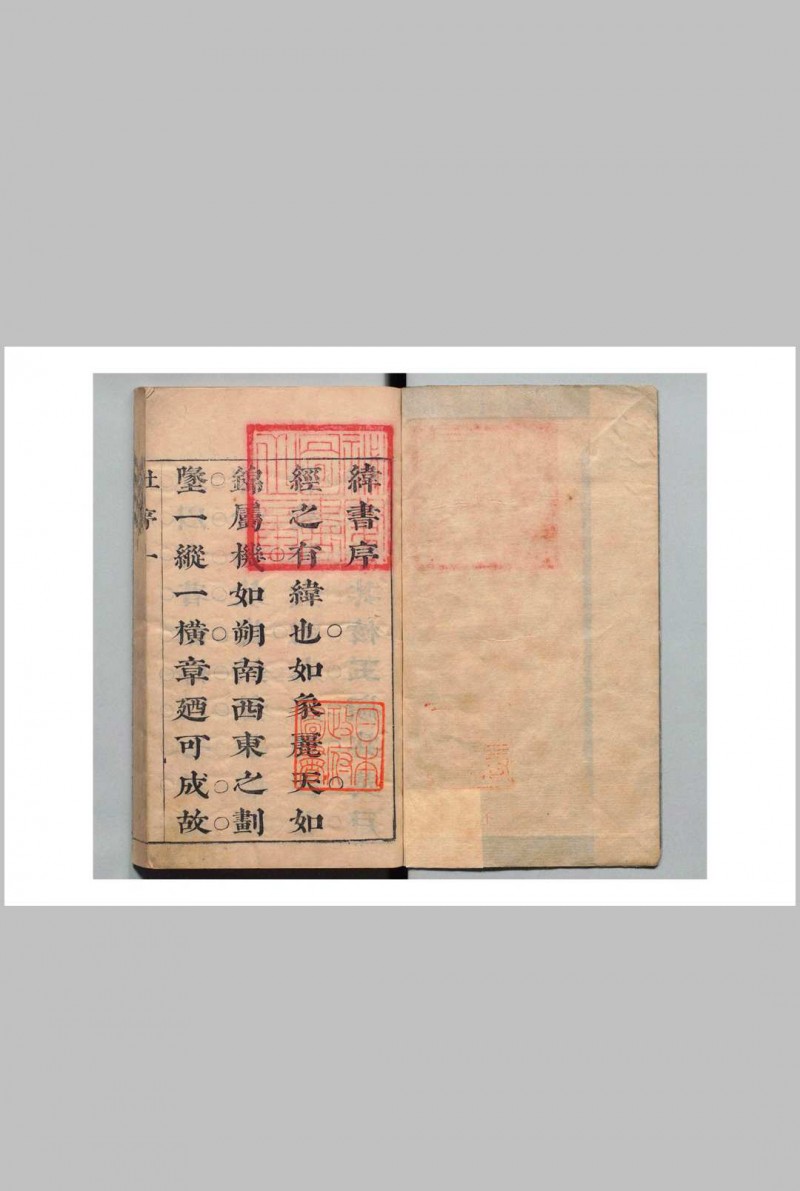 緯書序
經之有緯也○如象麗天○如
錦屬機○如朔南西東之劃○
墜一縱一橫章廼可成○故
杜序一